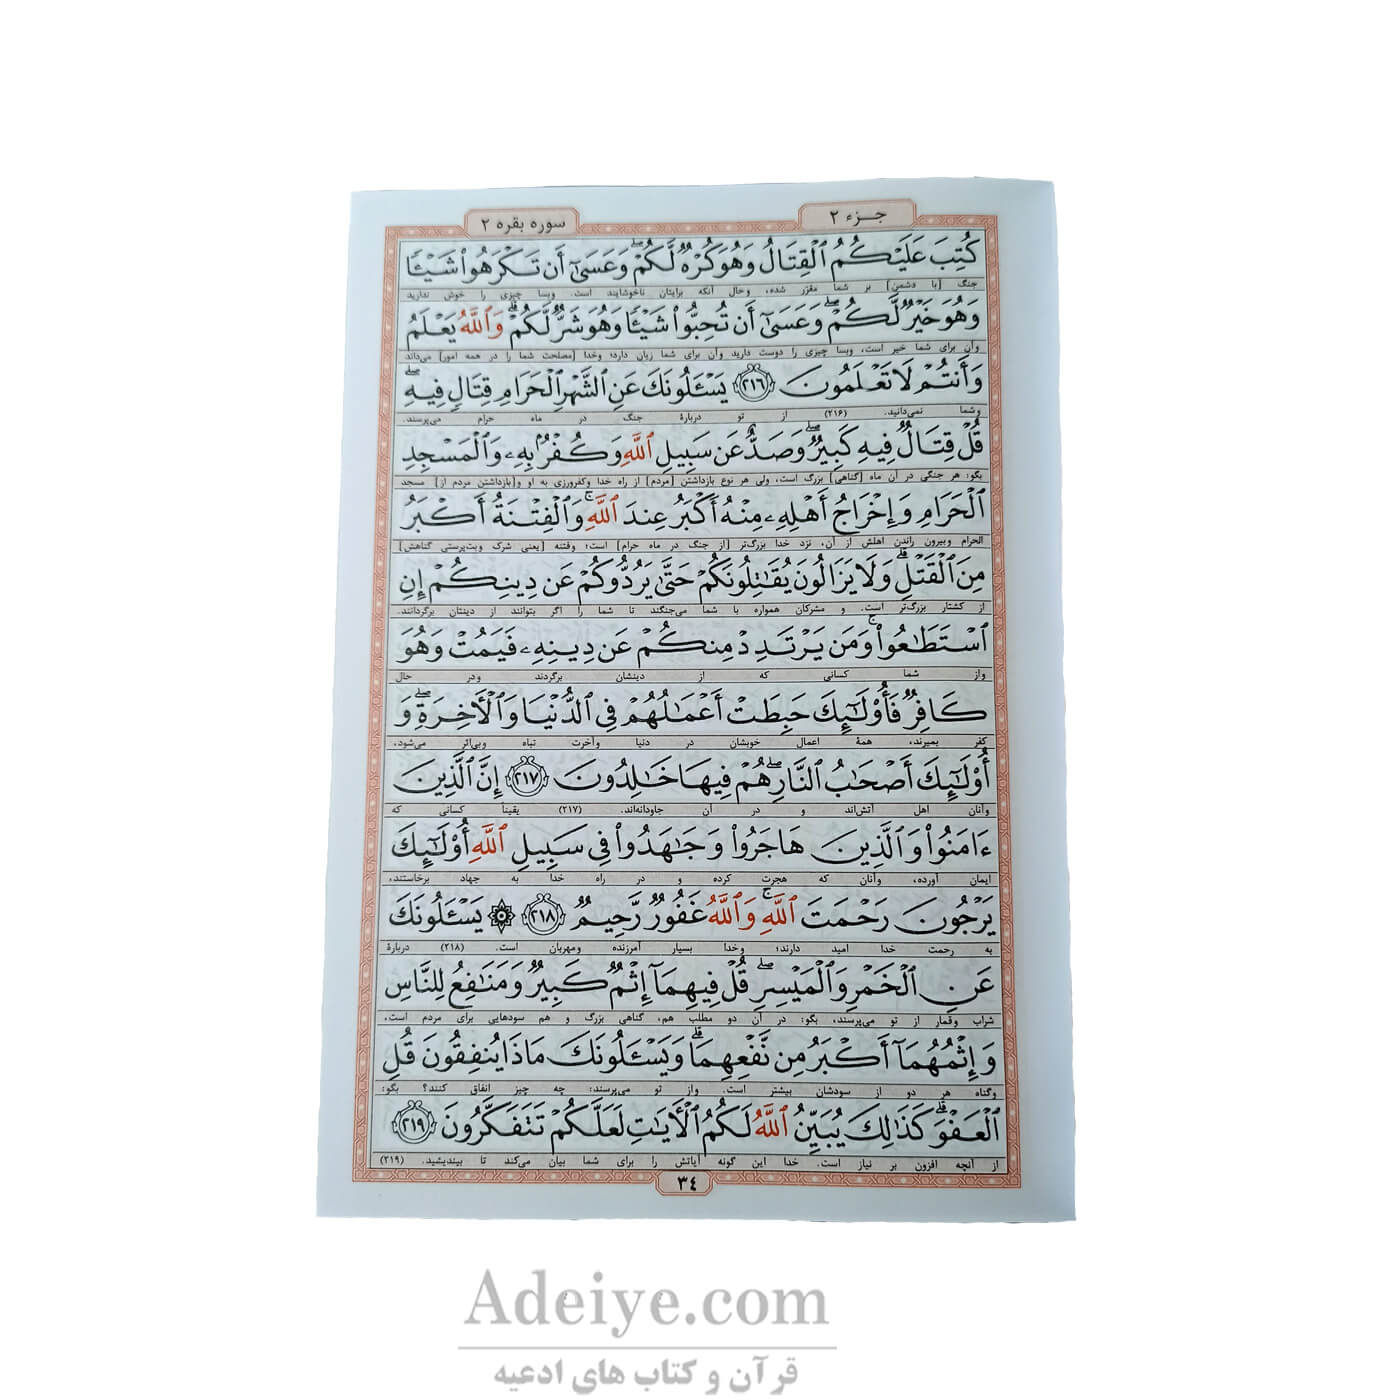 جـزء ۲
سوره بقره ۲
كُتِبَ عَلَيْكُمُ ٱلْقِتَالُ وَهُوَ كُرْهٌ لَّكُمْ ۖ وَعَسَىٰٓ أَن تَكْرَهُوا۟ شَيْـًٔا
جنگ [با دشمن] بر شما مقرّر شده، وحال آنکه برایتان ناخوشایند است. وبسا چیزی را خوش ندارید
وَهُوَ خَيْرٌ لَّكُمْ ۖ وَعَسَىٰٓ أَن تُحِبُّوا۟ شَيْـًٔا وَهُوَ شَرٌّ لَّكُمْ ۗ وَٱللَّهُ يَعْلَمُ
وآن برای شما خیر است، وبسا چیزی را دوست دارید وآن برای شما زیان دارد؛ وخدا [مصلحت شما را در همه امور] می‌داند
وَأَنتُمْ لَا تَعْلَمُونَ ٢١٦ يَسْـَٔلُونَكَ عَنِ ٱلشَّهْرِ ٱلْحَرَامِ قِتَالٍ فِيهِ ۖ
وشما نمی‌دانید. (۲۱۶) از تو دربارهٔ جنگ در ماه حرام می‌پرسند.
قُلْ قِتَالٌ فِيهِ كَبِيرٌ ۖ وَصَدٌّ عَن سَبِيلِ ٱللَّهِ وَكُفْرٌۢ بِهِۦ وَٱلْمَسْجِدِ
بگو: هر جنگی در آن ماه [گناهی] بزرگ است، ولی هر نوع بازداشتن [مردم] از راه خدا وکفرورزی به او و[بازداشتن مردم از] مسجد
ٱلْحَرَامِ وَإِخْرَاجُ أَهْلِهِۦ مِنْهُ أَكْبَرُ عِندَ ٱللَّهِ ۚ وَٱلْفِتْنَةُ أَكْبَرُ
الحرام وبیرون راندن اهلش از آن، نزد خدا بزرگ‌تر [از جنگ در ماه حرام] است؛ وفتنه [یعنی شرک وبت‌پرستی گناهش]
مِنَ ٱلْقَتْلِ ۗ وَلَا يَزَالُونَ يُقَـٰتِلُونَكُمْ حَتَّىٰ يَرُدُّوكُمْ عَن دِينِكُمْ إِنِ
از کشتار بزرگ‌تر است. و مشرکان همواره با شما می‌جنگند تا شما را اگر بتوانند از دینتان برگردانند.
ٱسْتَطَـٰعُوا۟ ۚ وَمَن يَرْتَدِدْ مِنكُمْ عَن دِينِهِۦ فَيَمُتْ وَهُوَ
واز شما کسانی که از دینشان برگردند ودر حال
كَافِرٌ فَأُو۟لَـٰٓئِكَ حَبِطَتْ أَعْمَـٰلُهُمْ فِى ٱلدُّنْيَا وَٱلْـَٔاخِرَةِ ۖ وَ
کفر بمیرند، همهٔ اعمال خوبشان در دنیا وآخرت تباه وبی‌اثر می‌شود،
أُو۟لَـٰٓئِكَ أَصْحَـٰبُ ٱلنَّارِ ۖ هُمْ فِيهَا خَـٰلِدُونَ ٢١٧ إِنَّ ٱلَّذِينَ
وآنان اهل آتش‌اند و در آن جاودانه‌اند. (۲۱۷) یقیناً کسانی که
ءَامَنُوا۟ وَٱلَّذِينَ هَاجَرُوا۟ وَجَـٰهَدُوا۟ فِى سَبِيلِ ٱللَّهِ أُو۟لَـٰٓئِكَ
ایمان آورده، وآنان که هجرت کرده و در راه خدا به جهاد برخاستند،
يَرْجُونَ رَحْمَتَ ٱللَّهِ ۚ وَٱللَّهُ غَفُورٌ رَّحِيمٌ ٢١٨ ۞ يَسْـَٔلُونَكَ
به رحمت خدا امید دارند؛ وخدا بسیار آمرزنده ومهربان است. (۲۱۸) دربارهٔ
عَنِ ٱلْخَمْرِ وَٱلْمَيْسِرِ ۖ قُلْ فِيهِمَآ إِثْمٌ كَبِيرٌ وَمَنَـٰفِعُ لِلنَّاسِ
شراب وقمار از تو می‌پرسند، بگو: در آن دو مطلب هم، گناهی بزرگ و هم سودهایی برای مردم است،
وَإِثْمُهُمَآ أَكْبَرُ مِن نَّفْعِهِمَا ۗ وَيَسْـَٔلُونَكَ مَاذَا يُنفِقُونَ قُلِ
وگناه هر دو از سودشان بیشتر است. واز تو می‌پرسند: چه چیز انفاق کنند؟ بگو:
ٱلْعَفْوَ ۗ كَذَٰلِكَ يُبَيِّنُ ٱللَّهُ لَكُمُ ٱلْـَٔايَـٰتِ لَعَلَّكُمْ تَتَفَكَّرُونَ ٢١٩
از آنچه افزون بر نیاز است. خدا این گونه آیاتش را برای شما بیان می‌کند تا بیندیشید. (۲۱۹)
٣٤
Adeiye.com
قرآن و کتاب های ادعیه